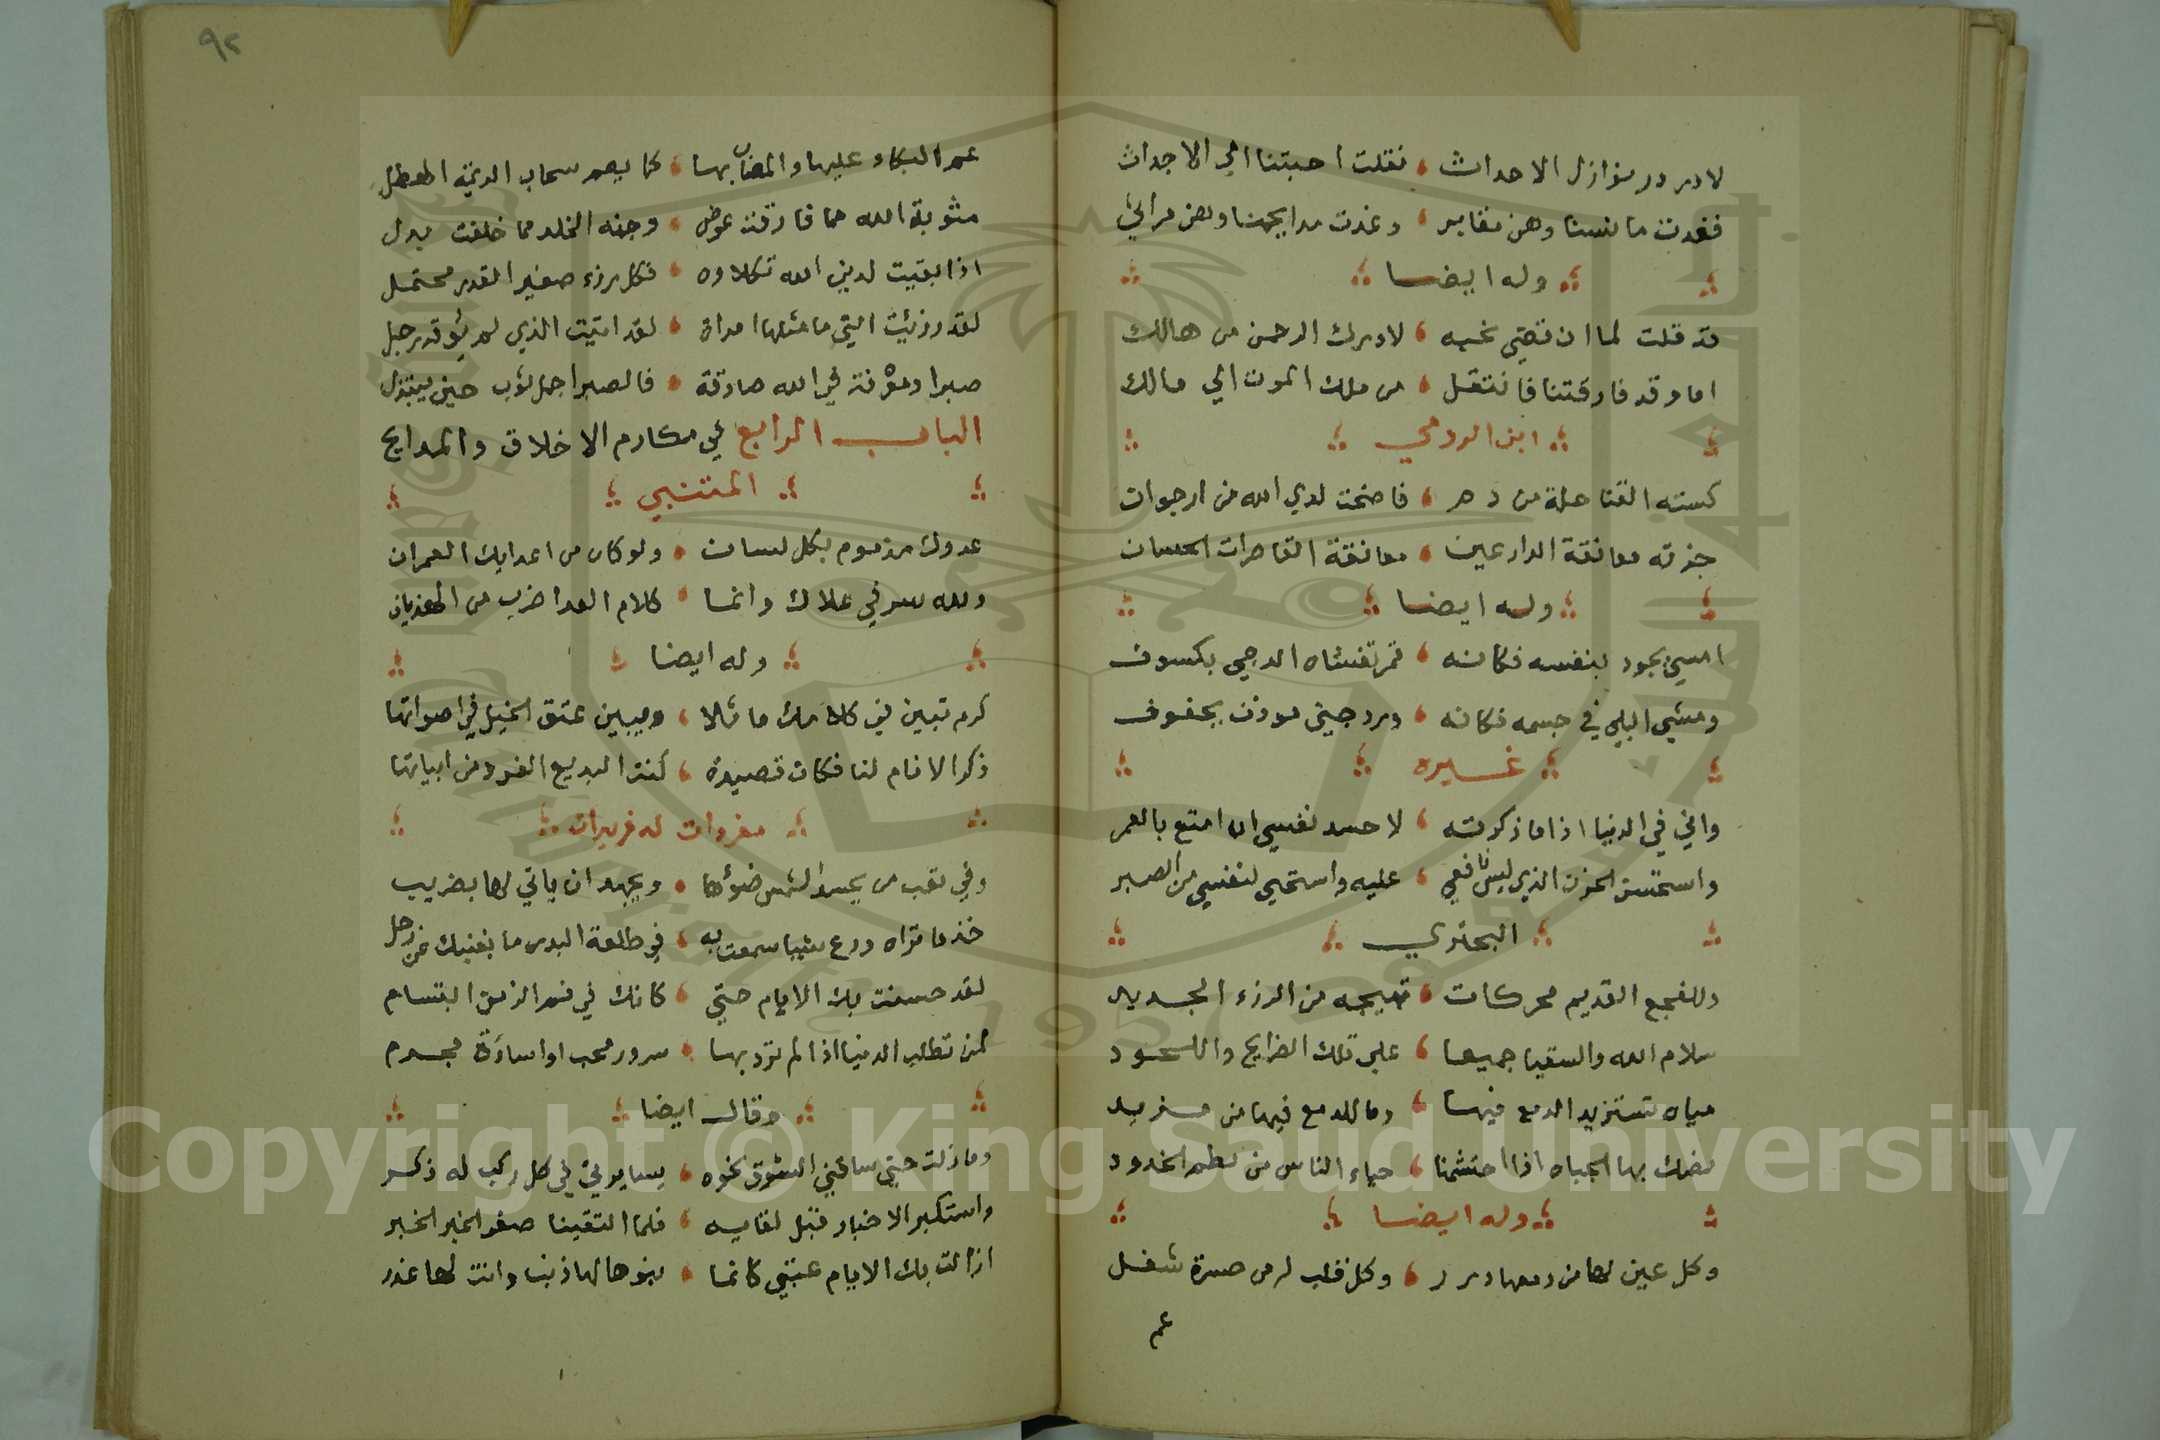 لا در در نوازل الاحداث ، نقلت احبتنا الي الاجداث
فغدت مانسنا وهن مقابر ، وغدت مدايحهنا وهن مراثي
وله ايضا
قد قلت لما ان قضي نحبه ، لا دبرك الرحمن من هالك
اما وقد فارقتنا فانتقل ، من ملك الموت الي مالك
ابن الرومي
كسته القنا حلة من دم ، فاضحت لدي الله من ارجوان
جزته معانقة الدارعين ، معانقة القاصرات الحسان
وله ايضا
امسي يجود بنفسه فكانه ، قمر تغشاه الدجي بكسوف
ومشي البلي في جسمه فكانه ، ورد جني موذن بجفوف
غيره
واني في الدنيا اذا ما ذكرته ، لاحسد نفسي ان امتع بالعمر
واستحسن الحزن الذي ليس نافعي ، عليه واستحيي لنفسي من الصبر
البحتري
وللفجع القديم محركات ، تهيجه من الرزء الجديد
سلام الله والسقيا جميعا ، علي تلك الضرايح واللحود
مياه تستزيد الدمع فيها ، وما للدمع فيها من مزيد
نصك بها الجباه اذا احتشمنا ، حياء الناس من لطم الخدود
وله ايضا
وكل عين لها من دمعها درر ، وكل قلب له من حسرة شغل
عم
٩٢
عم البكاء عليها والمصاب بها ، كما يعم سحاب الديمة الهطل
مثوبة الله مما فارقت عوض ، وجنه الخلد مما خلفت بدل
اذا بقيت لدين الله تكلاوه ، فكل رزء صغير القدر محتمل
لقد رزئت التي ما مثلها امراة ، لقد اتيت الذي لم يؤته رجل
صبرا ومعرفة في الله صادقة ، فالصبر اجمل ثوب حين يبتذل
الباب الرابع في مكارم الاخلاق والمدايح
المتنبي
عدوك مذموم بكل لسان ، ولو كان من اعدايك القمران
ولله سر في علاك وانما ، كلام العدا ضرب من الهذيان
وله ايضا
كرم تبين في كلامك ماثلا ، ويبين عتق الخيل في اصواتها
ذكر الانام لنا فكان قصيدة ، كنت البديع الفرد من ابياتها
مفردات له فريدات
وفي تعب من يحسد الشمس ضوئها ، ويجهد ان ياتي لها بضريب
خذ ما تراه ودع شيا سمعت به ، في طلعة البدر ما يغنيك عن زحل
لقد حسنت بك الايام حتي ، كانك في فم الزمن ابتسام
لمن تطلب الدنيا اذا لم ترد بها ، سرور محب او اساءة مجرم
وقال ايضا
وما زلت حتي ساقني الشوق نحوه ، يسايرني في كل ركب له ذكر
واستكبر الاخبار قبل لقايه ، فلما التقينا صغر الخبر الخبر
ازالت بك الايام عتبي كانما ، بنوها لها ذنب وانت لها عذر
Copyright © King Saud University